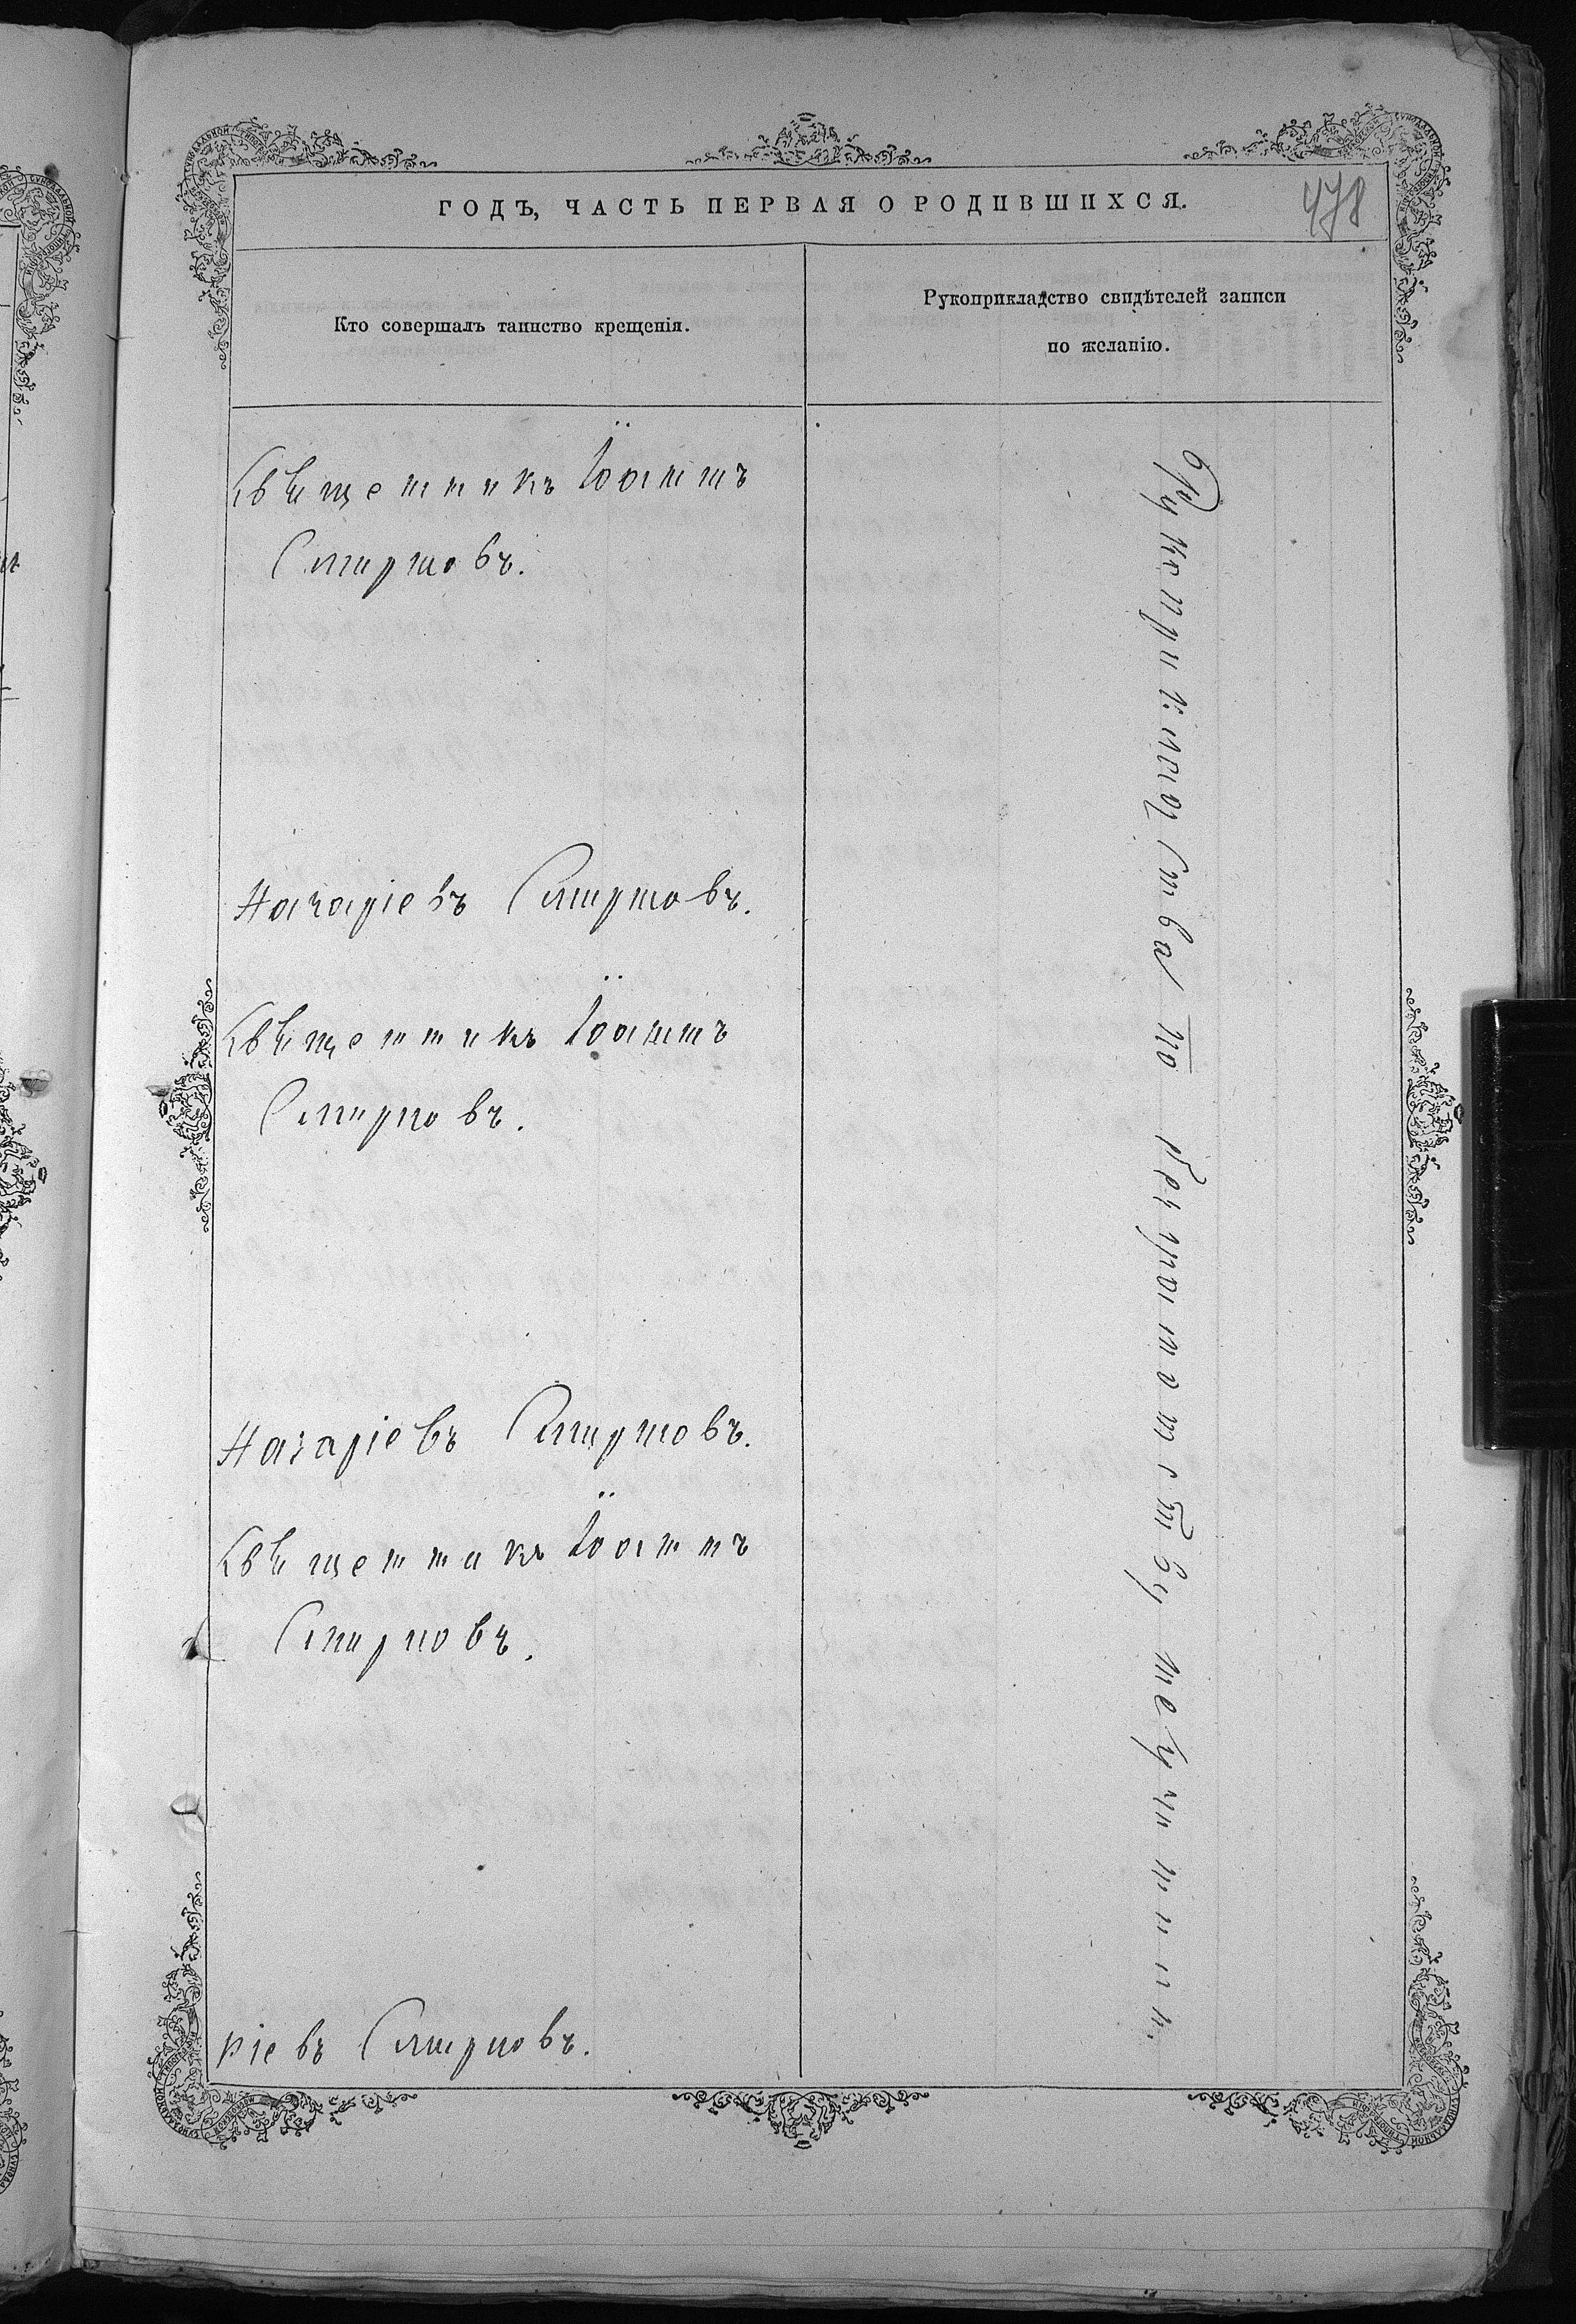 ГОДЪ, ЧАСТЬ ПЕРВАЯ О РОДИВШИХСЯ.
478
Кто совершалъ таинство крещенія.
Рукоприкладство свидѣтелей записи
по желанію.
Священникъ Іоаннъ
Смирновъ.
Назаріевъ Смирновъ.
Священникъ Іоаннъ
Смирновъ.
Назаріевъ Смирновъ.
Священникъ Іоаннъ
Смирновъ.
ріевъ Смирновъ.
Рукоприкладства по безграмотству не учинили.